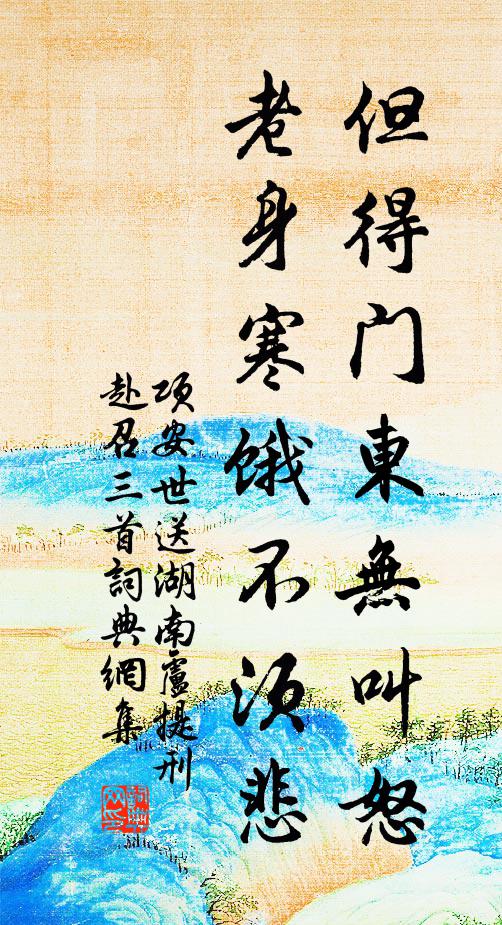 但得门東無叫怒
老身寒餓不須悲
項安世送湖南盧提刑
赴召三首詞典網集